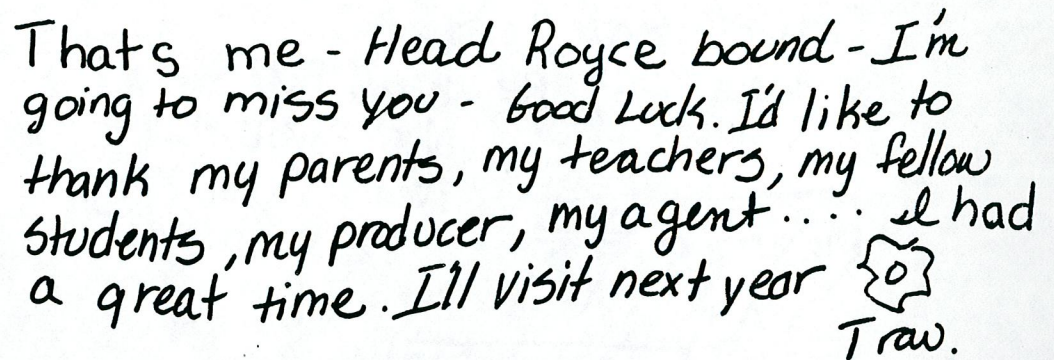 Thats me - Head Royce bound - I'm
going to miss you - Good Luck. I'd like to
thank my parents, my teachers, my fellow
students, my producer, my agent .... I had
a great time. I'll visit next year
Trav.